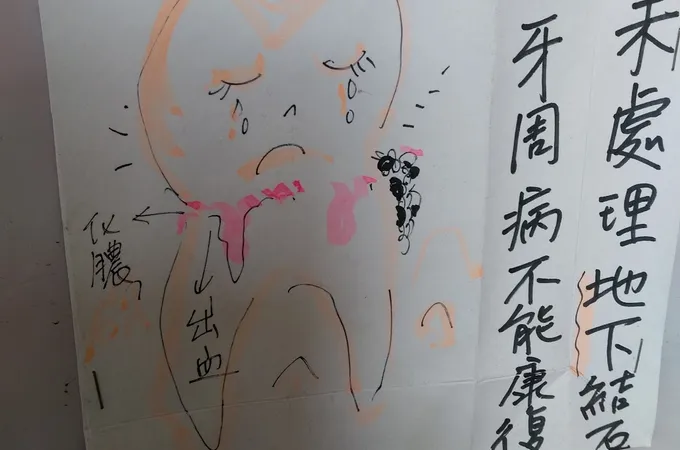 未處理地下結石
牙周病不能康復
化膿
出血